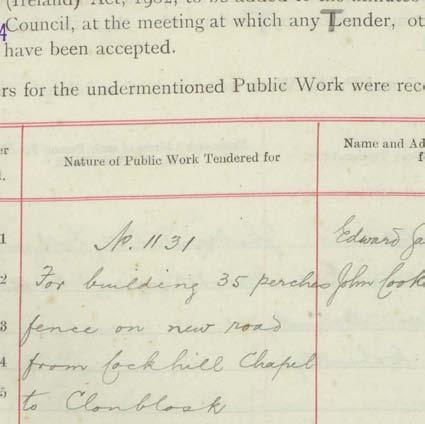 (Ireland) Act, 1902, to be added to the minutes
4 Council, at the meeting at which any Tender, ot
have been accepted.
ers for the undermentioned Public Work were rece
er Nature of Public Work Tendered for Name and Ad
d. f
1 No. 1131 Edward
2 For building 35 perches John Cook
3 fence on new road
4 from Cockhill Chapel
5 to Clonblosk